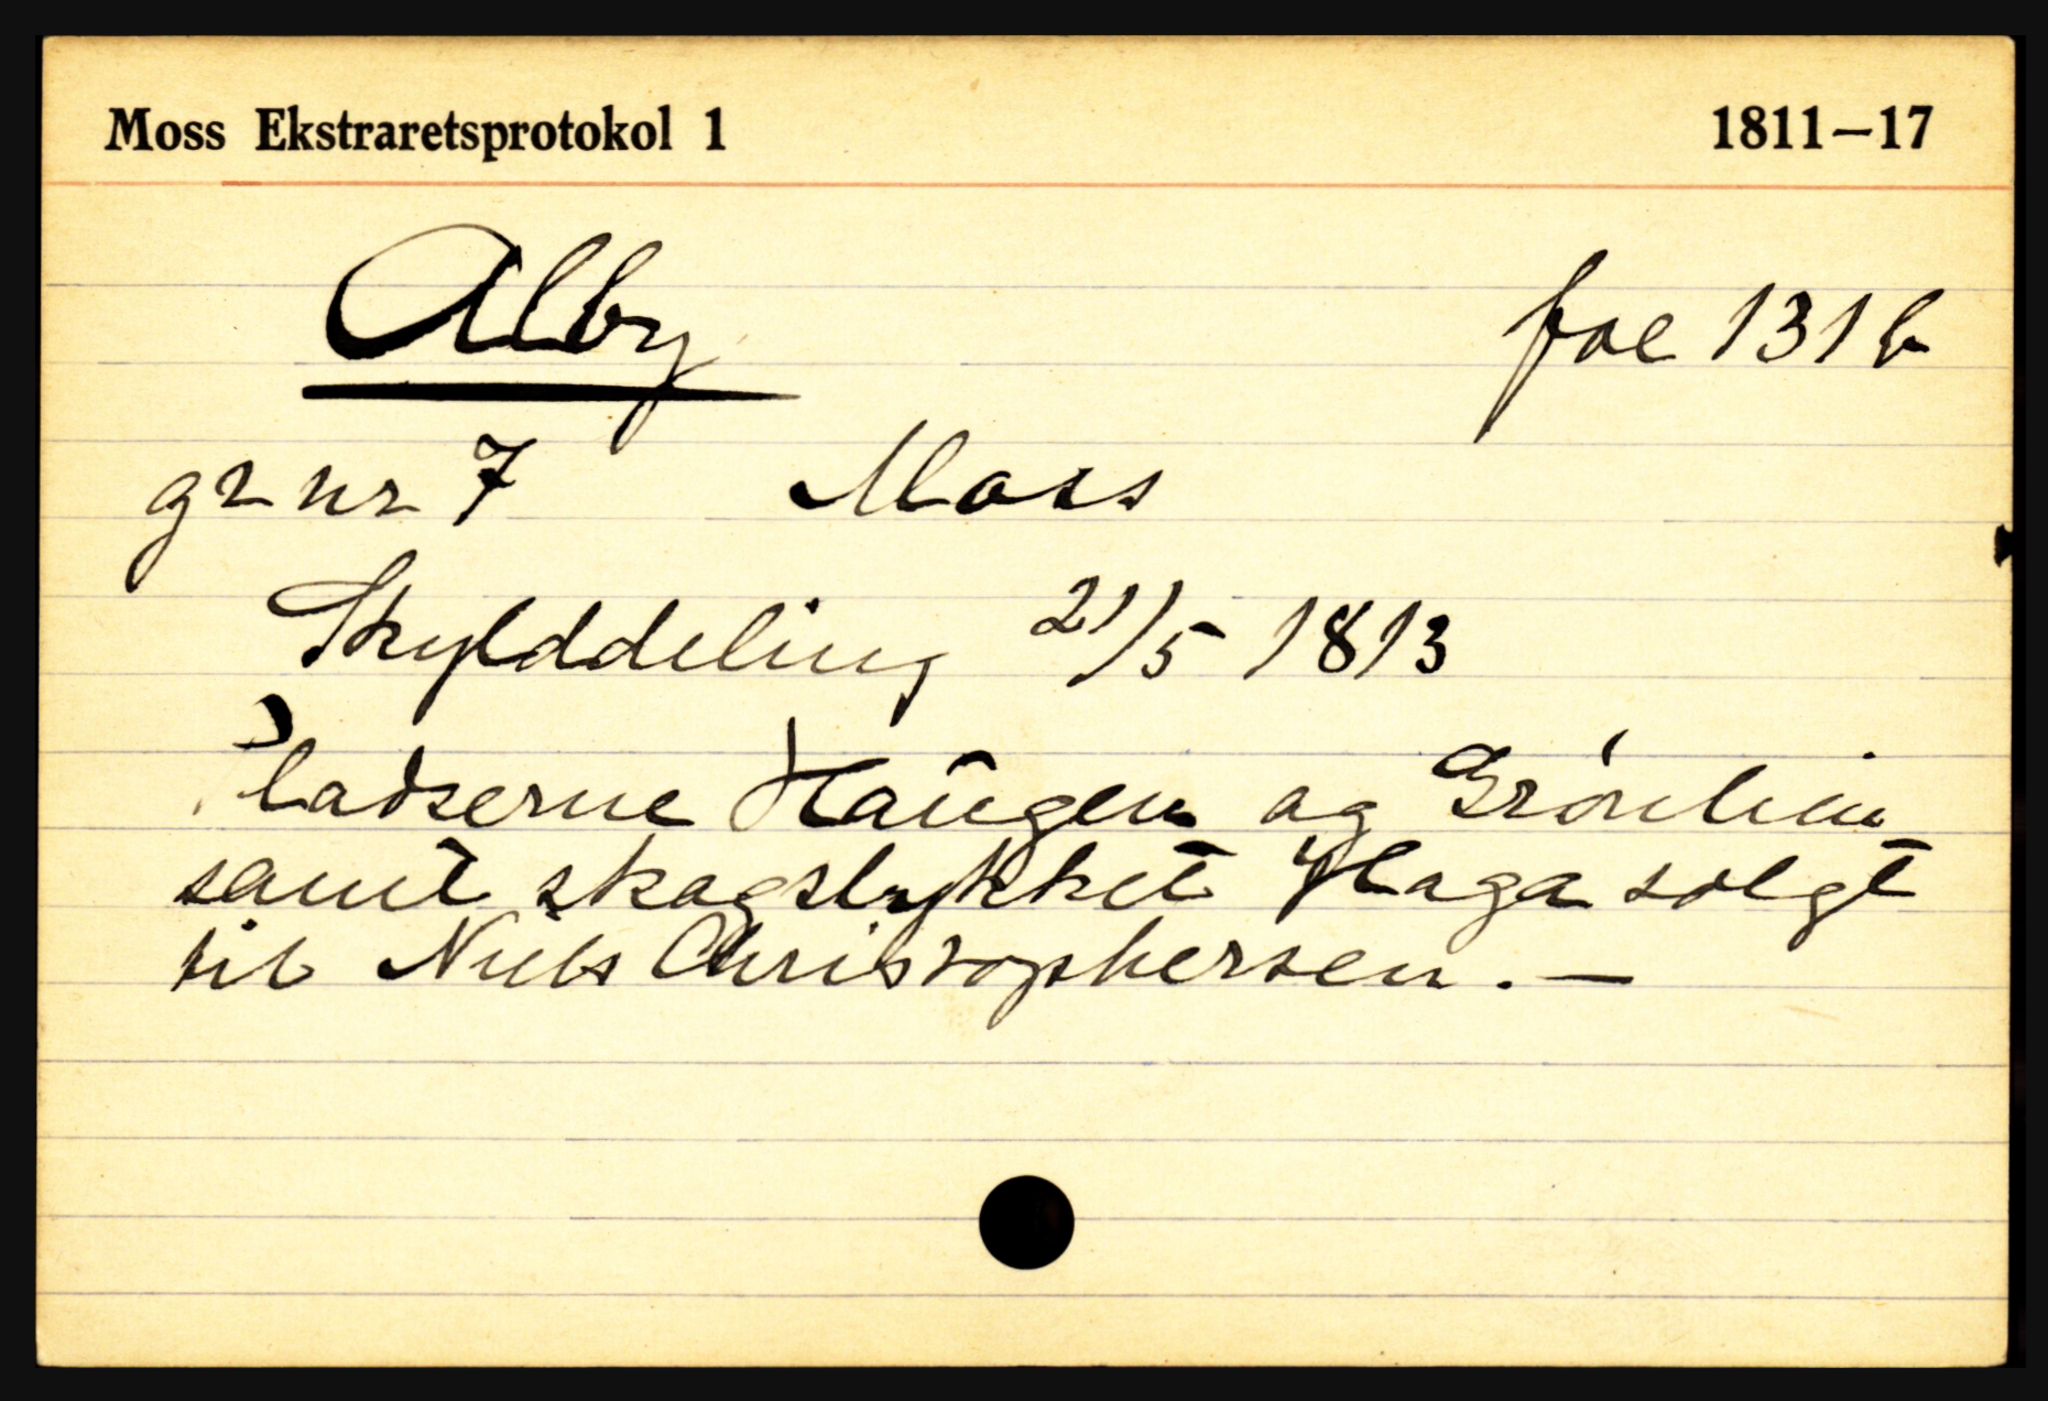 Moss Ekstraretsprotokol 1 1811–17
Alby fol 131 b
gr nr 7 Moss
Skylddeling 21/5 1813
Pladserne Haugen og Grønlien
samt skogstykket Haga solgt
til Niels Christophersen. —